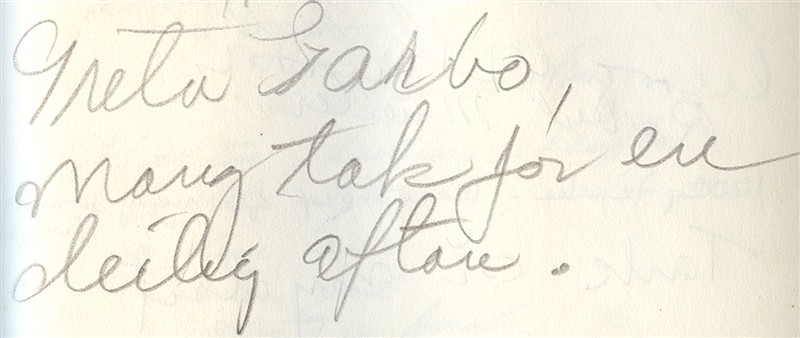 Greta Garbo,
Mang tak för en
deilig afton.